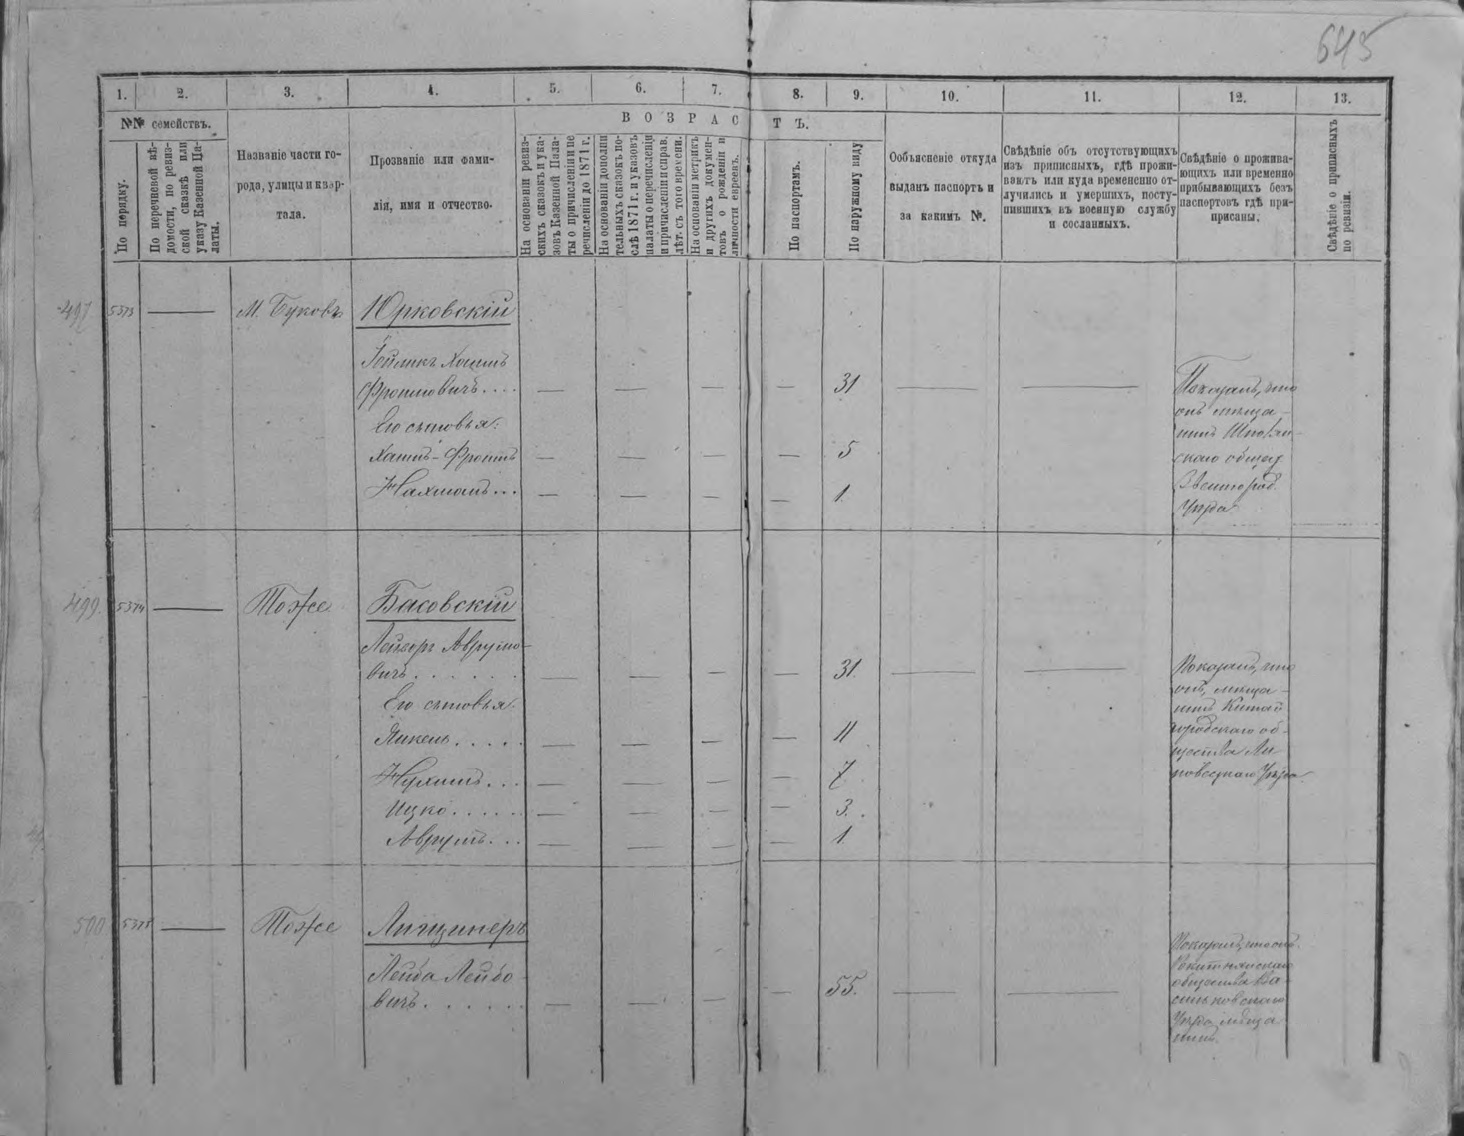 645
1. 2. 3. 4. 5. 6. 7. 8. 9. 10. 11. 12. 13.
№№ семействъ.
По порядку.
По перечневой вѣ-
домости, по ревиз-
ской сказкѣ или
указу Казенной Па-
латы.
Названіе части го-
рода, улицы и квар-
тала.
Прозваніе или фами-
лія, имя и отчество.
ВОЗРАСТЪ.
На основаніи ревиз-
скихъ сказокъ и ука-
зовъ Казенной Пала-
ты о причисленіи пе
речисленіи до 1871 г.
На основаніи дополни
тельныхъ сказокъ по-
слѣ 1871 г. и указовъ
палаты о перечисленіи
и причисленіи исправ.
лѣт. съ того времени.
На основаніи метрикъ
и другихъ докумен-
товъ о рожденіи и
личности евреевъ.
По паспортамъ.
По наружному виду
Ообъясненіе откуда
выданъ паспортъ и
за какимъ №.
Свѣдѣніе объ отсутствующихъ
изъ приписныхъ, гдѣ прожи-
ваютъ или куда временно от-
лучились и умершихъ, посту-
пившихъ въ военную службу
и сосланныхъ.
Свѣдѣніе о прожива-
ющихъ или временно
прибывающихъ безъ
паспортовъ гдѣ при-
приcаны.
Свѣдѣніе о приписныхъ
по ревизіи.
497 5373 — М. Буковъ Юрковскій
Хаимъ
Фроимовичъ.... — — — — 31 — — Показалъ, что
онъ мѣща-
нинъ
Его сыновья:
Хаимъ-Фроимъ — — — — 5
скаго общес.
Нахманъ... — — — — 1.
Звенигород.
Уѣзда
499. 5374 — Тоже Басовскій
Лейзоръ Аврумо-
вичъ...... — — — 31. — — Показалъ, что
онъ, мѣща-
нинъ Китай
городскаго об-
щества Ли
повецкаго Уѣзда.
Его сыновья
Янкель..... — — — — 11
Нухимъ... — — — — 7
Ицко..... — — — — 3.
Аврумъ... — — — — 1
500 5375 — Тоже Липцинеръ
Лейба Лейбо-
вичъ...... — — — — 55. — — Показалъ, что онъ
Рокитнянскаго
общества Ва-
сильковскаго
Уѣзда мѣща
нинъ.